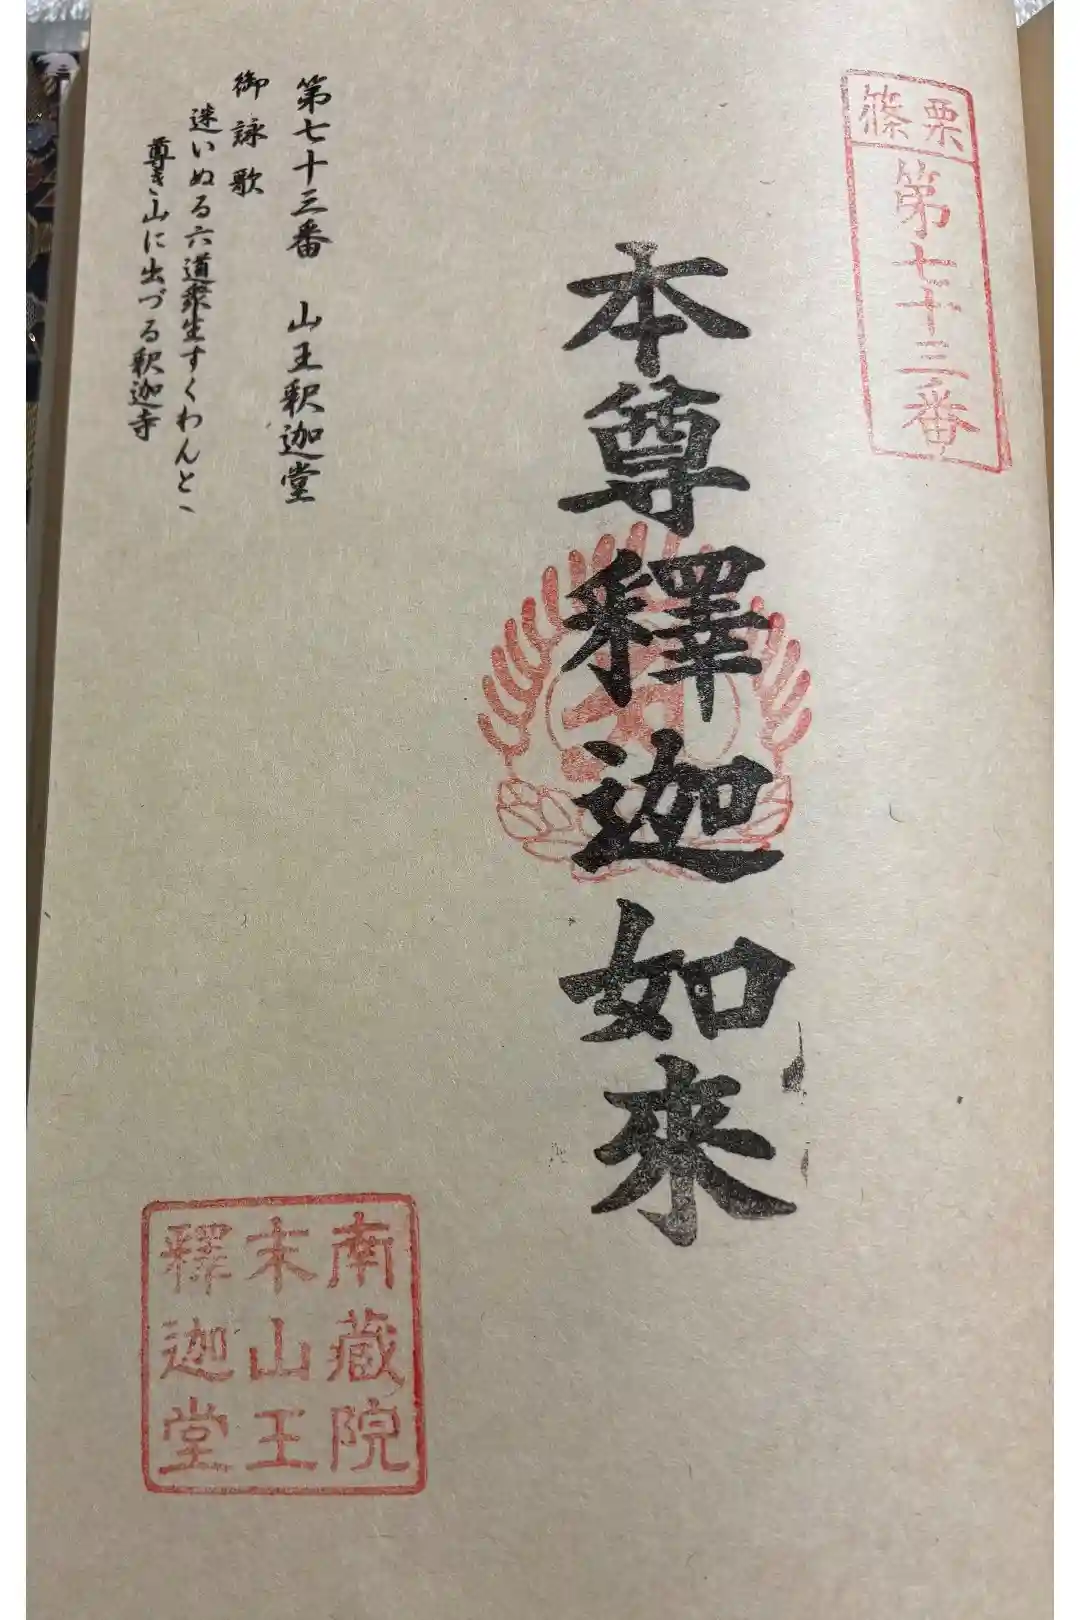 篠栗
第七十三番
本尊釋迦如来
第七十三番 山王釈迦堂
御詠歌
迷いぬる六道衆生すくわんと、
尊き山に出づる釈迦寺
南蔵院
末山王
釋迦堂